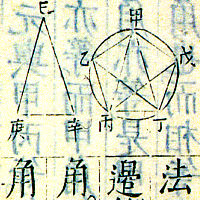 甲
乙
戊
丙
丁
己
庚
辛
法
邊
角
角